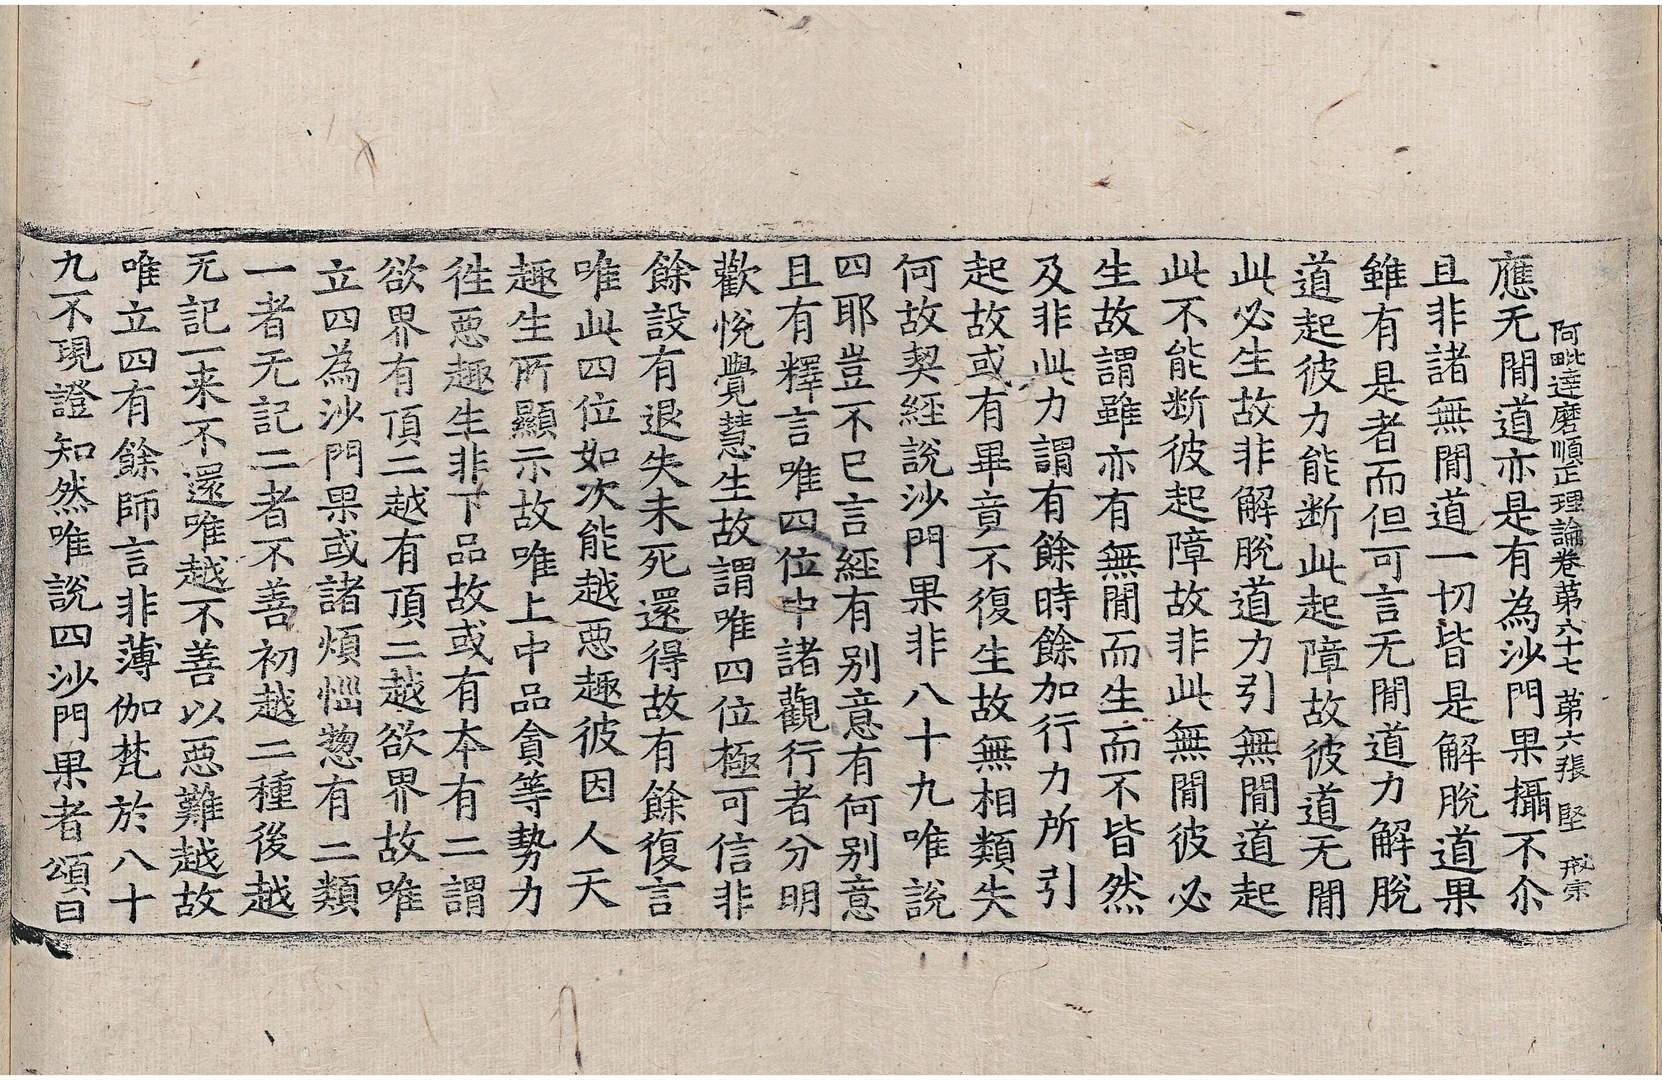 阿毗達磨順正理論卷第六十七 第六張 堅 戒宗
應无閒道亦是有為沙門果攝不尒
且非諸無閒道一切皆是解脫道果
雖有是者而但可言无閒道力解脫
道起彼力能断此起障故彼道无閒
此必生故非解脫道力引無閒道起
此不能断彼起障故非此無閒彼必
生故謂雖亦有無閒而生而不皆然
及非此力謂有餘時餘加行力所引
起故或有畢竟不復生故無相類失
何故契經說沙門果非八十九唯說
四耶豈不已言經有別意有何別意
且有釋言唯四位中諸觀行者分明
歡悅覺慧生故謂唯四位極可信非
餘設有退失未死還得故有餘復言
唯此四位如次能越惡趣彼因人天
趣生所顯示故唯上中品貪等勢力
徃惡趣生非下品故或有夲有二謂
欲界有頂二越有頂二越欲界故唯
立四為沙門果或諸煩惱惣有二類
一者无記二者不善初越二種後越
无記一来不還唯越不善以惡難越故
唯立四有餘師言非薄伽梵於八十
九不現證知然唯說四沙門果者頌曰